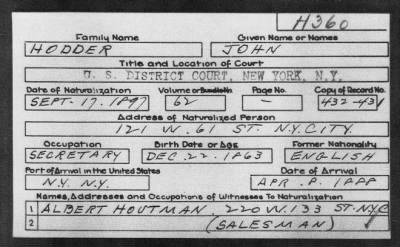 H360
Family Name Given Name or Names
HODDER JOHN
Title and Location of Court
U. S. DISTRICT COURT, NEW YORK, N.Y.
Date of Naturalization Volume or Bundle No. Page No. Copy of Record No.
SEPT. 17. 1897 62 - 432-431
Address of Naturalized Person
121 W. 61 ST. N.Y. CITY.
Occupation Birth Date or Age Former Nationality
SECRETARY DEC. 22. 1863 ENGLISH
Port of Arrival in the United States Date of Arrival
N.Y. N.Y. APR. 8. 1888
Names, Addresses and Occupations of Witnesses To Naturalization
1 ALBERT HOUTMAN. 220 W. 133 ST. N.Y.C
2 (SALESMAN)